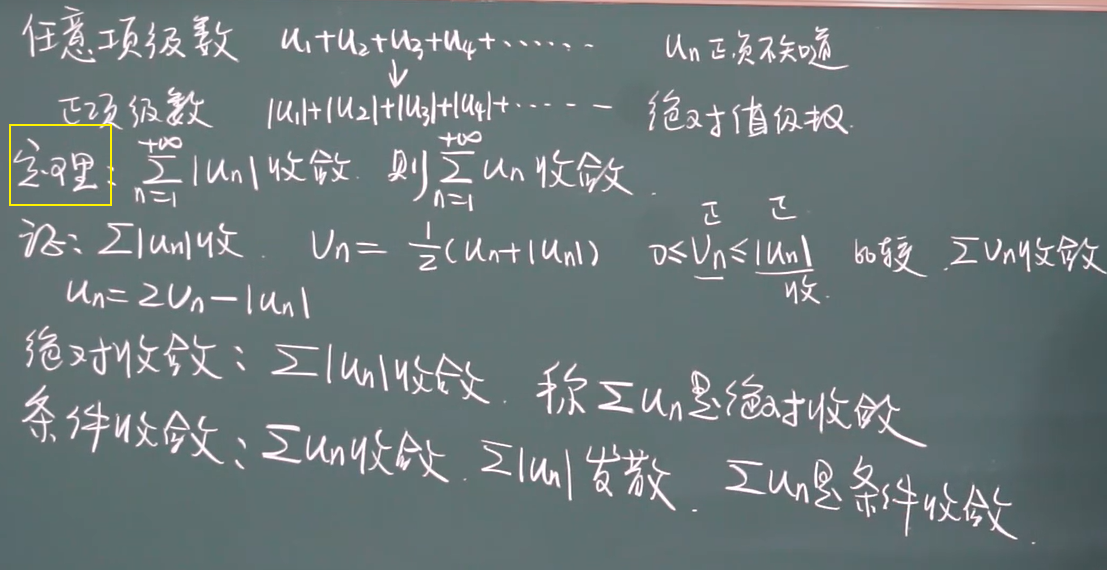 任意项级数 u₁+u₂+u₃+u₄+…… uₙ正负不知道
↓
正项级数 |u₁|+|u₂|+|u₃|+|u₄|+…… 绝对值级数.
定理: ∑_{n=1}^{+∞}|uₙ|收敛. 则∑_{n=1}^{+∞}uₙ收敛.
证: ∑|uₙ|收. vₙ=1/2(uₙ+|uₙ|) 0≤vₙ(正)≤|uₙ|(正)收. 比较. ∑vₙ收敛
uₙ=2vₙ-|uₙ|
绝对收敛: ∑|uₙ|收敛. 称∑uₙ是绝对收敛
条件收敛: ∑uₙ收敛. ∑|uₙ|发散. ∑uₙ是条件收敛.